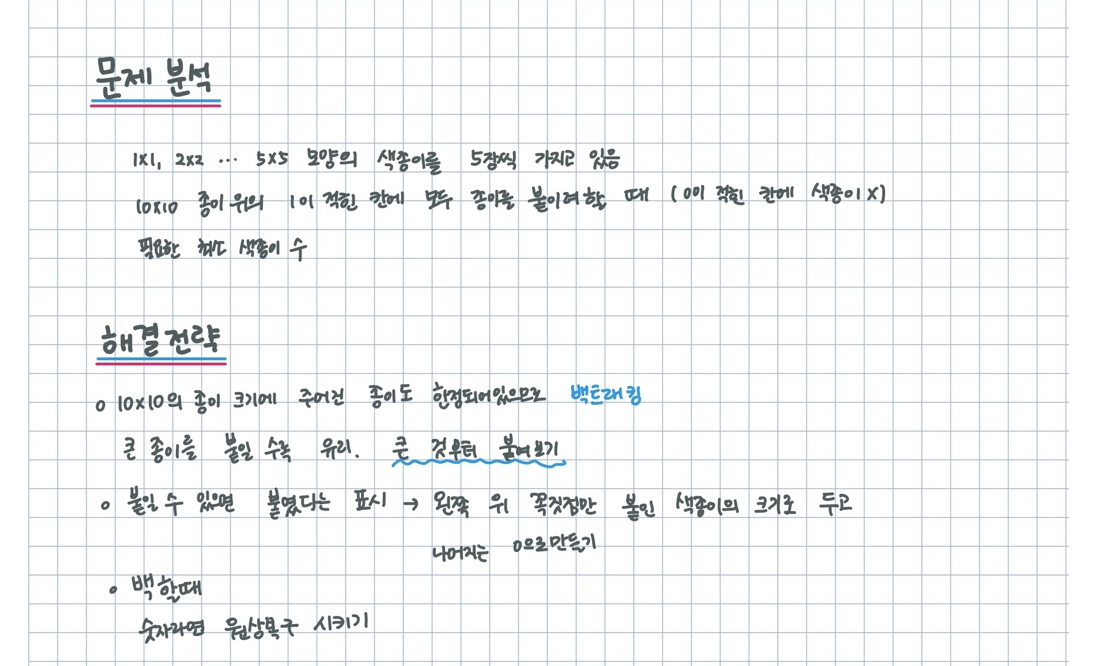 문제 분석
1x1, 2x2 ... 5x5 모양의 색종이를 5장씩 가지고 있음
10x10 종이 위의 1이 적힌 칸에 모두 종이를 붙이려할 때 (0이 적힌 칸에 색종이 X)
필요한 최소 색종이 수
해결전략
o 10x10의 종이 크기에 주어진 종이도 한정되어있으므로 백트래킹
큰 종이를 붙일 수록 유리. 큰 것부터 붙여보기
o 붙일 수 있으면 붙였다는 표시 → 왼쪽 위 꼭짓점만 붙인 색종이의 크기로 두고
나머지는 0으로 만들기
o 백할때
숫자라면 원상복구 시키기